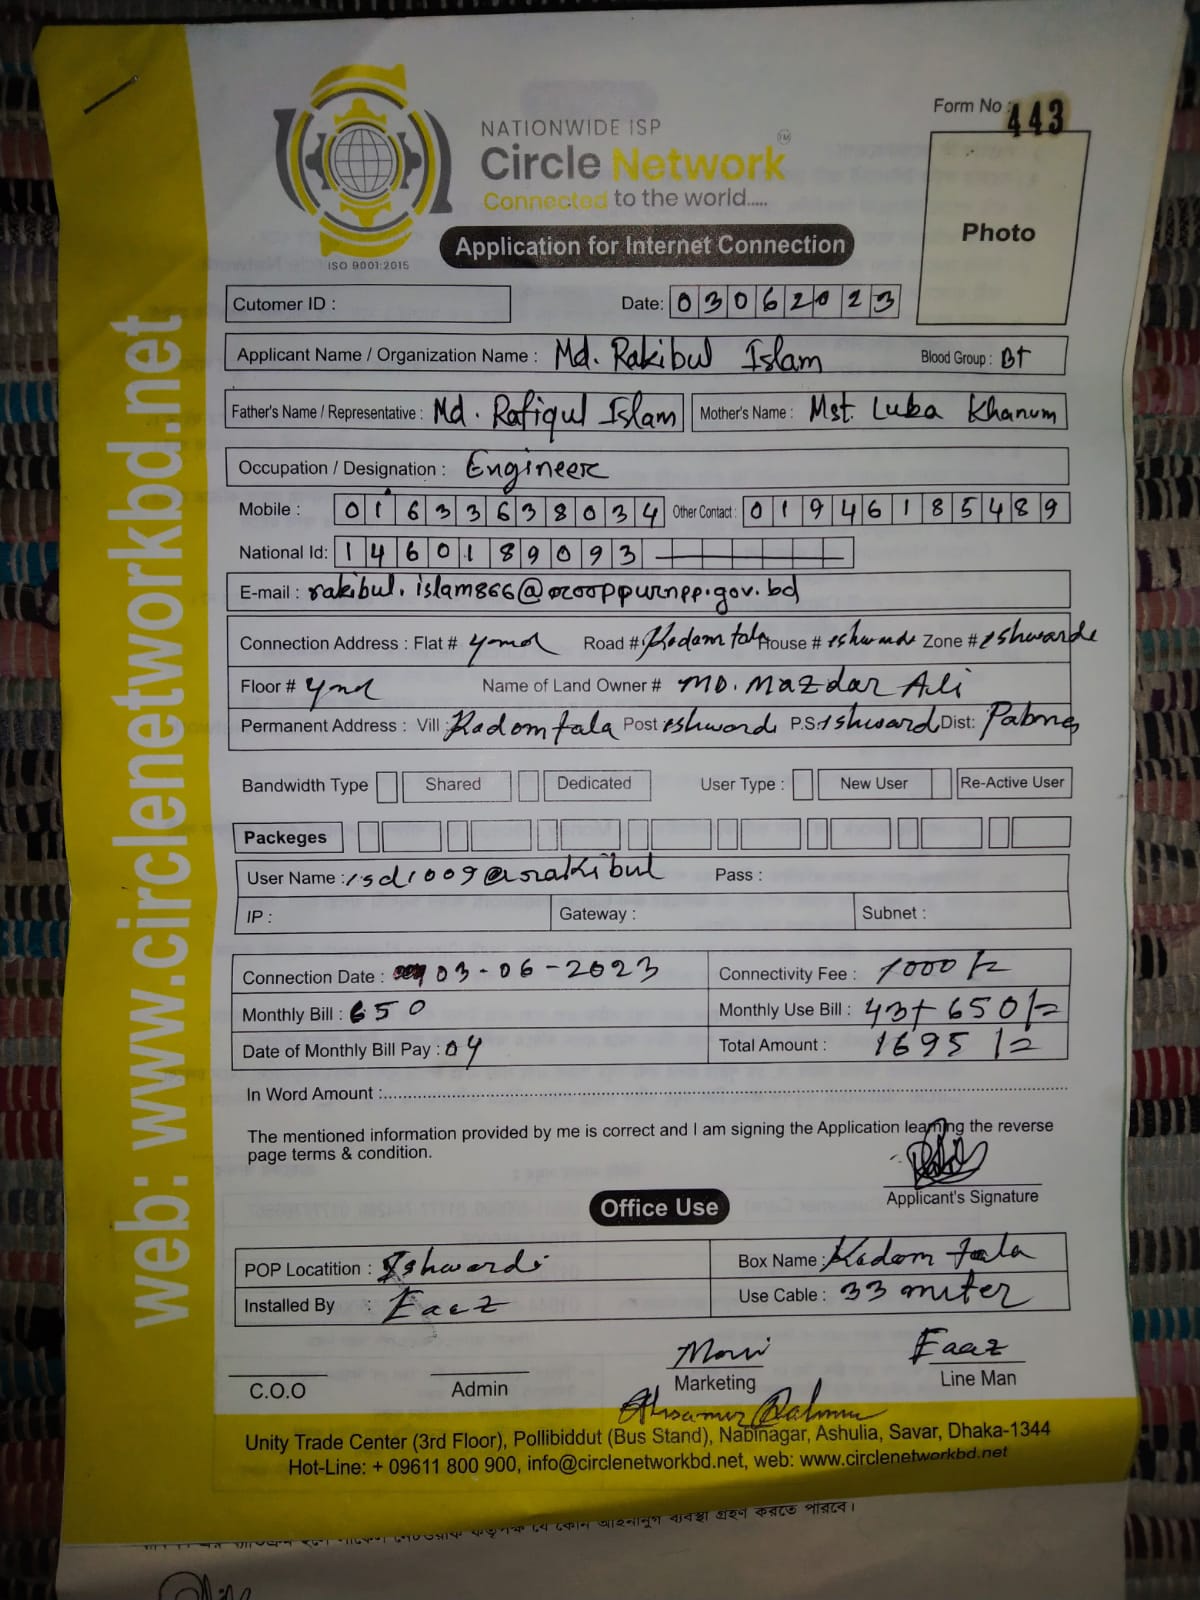 Form No : 443
NATIONWIDE ISP
Circle Network TM
Connected to the world.....
ISO 9001:2015
Application for Internet Connection
Photo
Cutomer ID :
Date: 03062023
Applicant Name / Organization Name : Md. Rakibul Islam Blood Group : B+
Father's Name / Representative : Md. Rafiqul Islam Mother's Name : Mst. Luba Khanum
Occupation / Designation : Engineer
Mobile : 01633638034 Other Contact : 01946185489
National Id: 1460189093
E-mail : rakibul.islam866@rooppurnpp.gov.bd
Connection Address : Flat # Road # Kadamtala House # Zone #
Floor # Name of Land Owner # MD. Mazdar Ali
Permanent Address : Vill : Kadomtala Post P.S: Dist:
Bandwidth Type Shared Dedicated User Type : New User Re-Active User
Packeges
User Name : isd1009@rakibul Pass :
IP : Gateway : Subnet :
Connection Date : 03-06-2023 Connectivity Fee : 1000/=
Monthly Bill : 650 Monthly Use Bill : 43+650/=
Date of Monthly Bill Pay : 04 Total Amount : 1695/=
In Word Amount :
The mentioned information provided by me is correct and I am signing the Application learning the reverse
page terms & condition.
Applicant's Signature
Office Use
POP Locatition : Ishwardi Box Name : Kadom tala
Installed By : Faaz Use Cable : 33 miter
Faaz
C.O.O Admin Marketing Line Man
Unity Trade Center (3rd Floor), Pollibiddut (Bus Stand), Nabinagar, Ashulia, Savar, Dhaka-1344
Hot-Line: + 09611 800 900, info@circlenetworkbd.net, web: www.circlenetworkbd.net
web: www.circlenetworkbd.net
যে কোন আইনানুগ ব্যবস্থা গ্রহণ করতে পারবে।